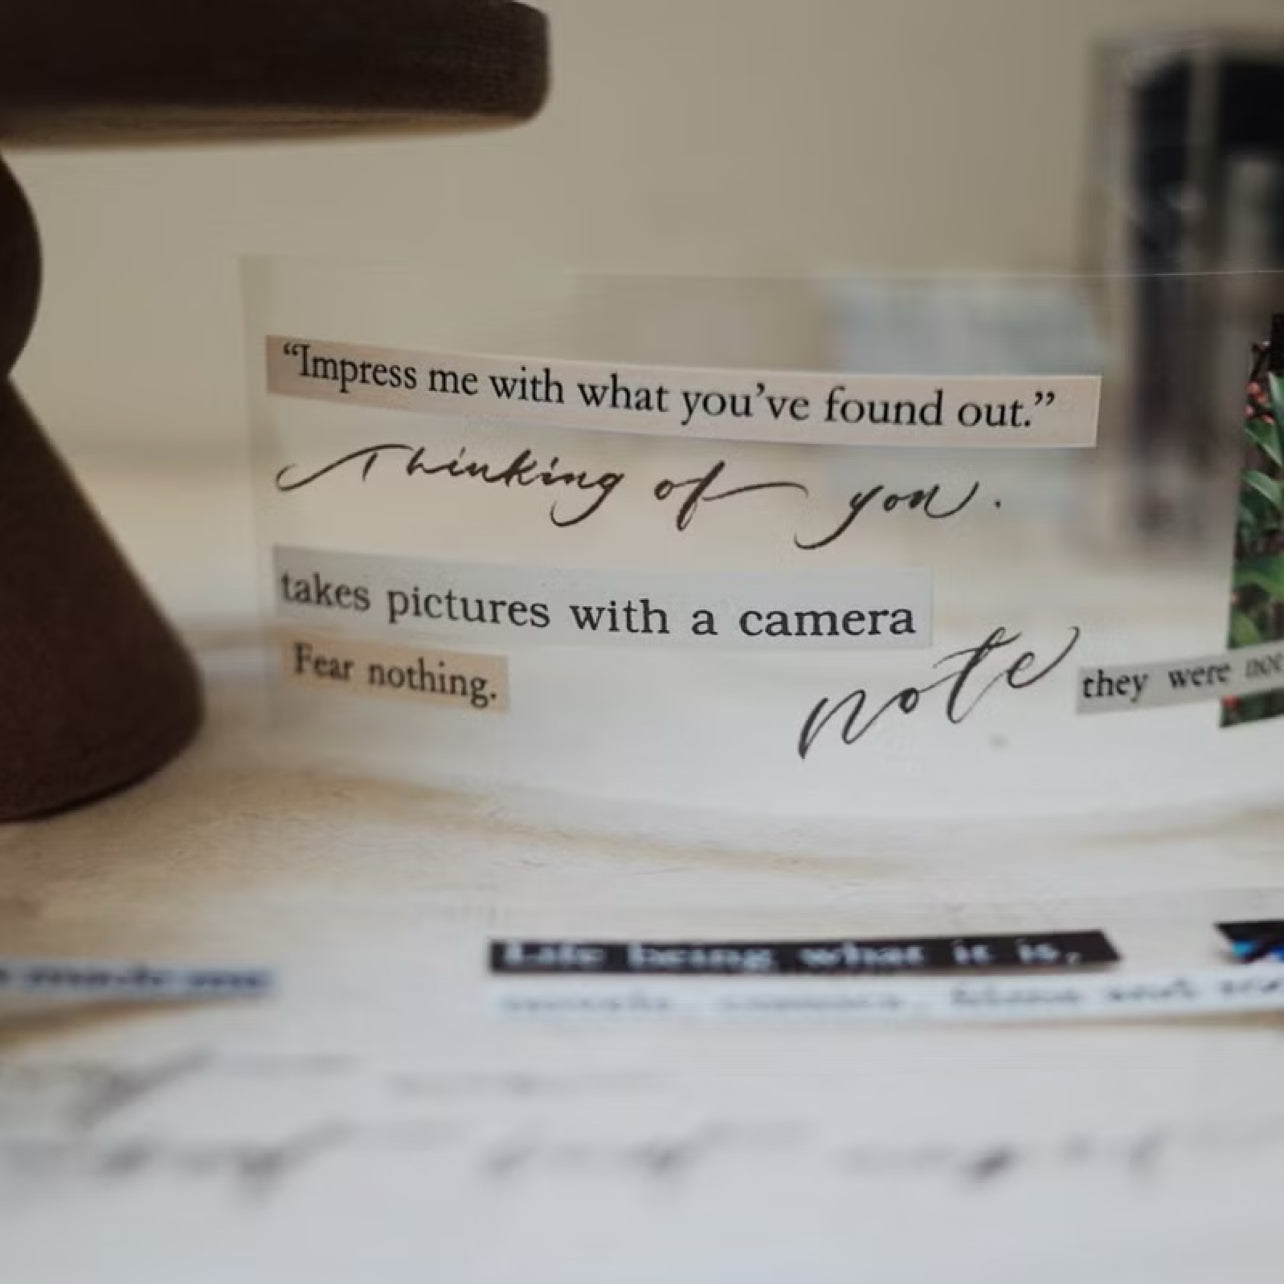 “Impress me with what you’ve found out.”
Thinking of you.
takes pictures with a camera
Fear nothing.
note
they were not
made me
Life being what it is,